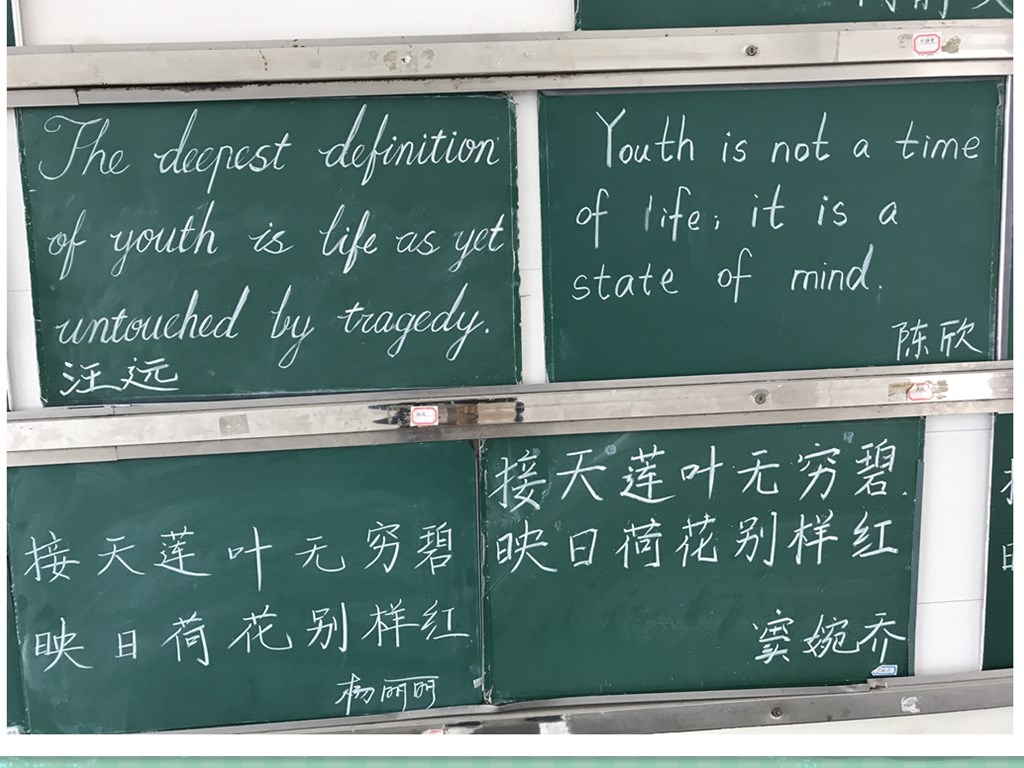 The deepest definition
of youth is life as yet
untouched by tragedy.
汪远
Youth is not a time
of life; it is a
state of mind.
陈欣
接天莲叶无穷碧
映日荷花别样红
杨丽明
接天莲叶无穷碧.
映日荷花别样红
窦婉乔